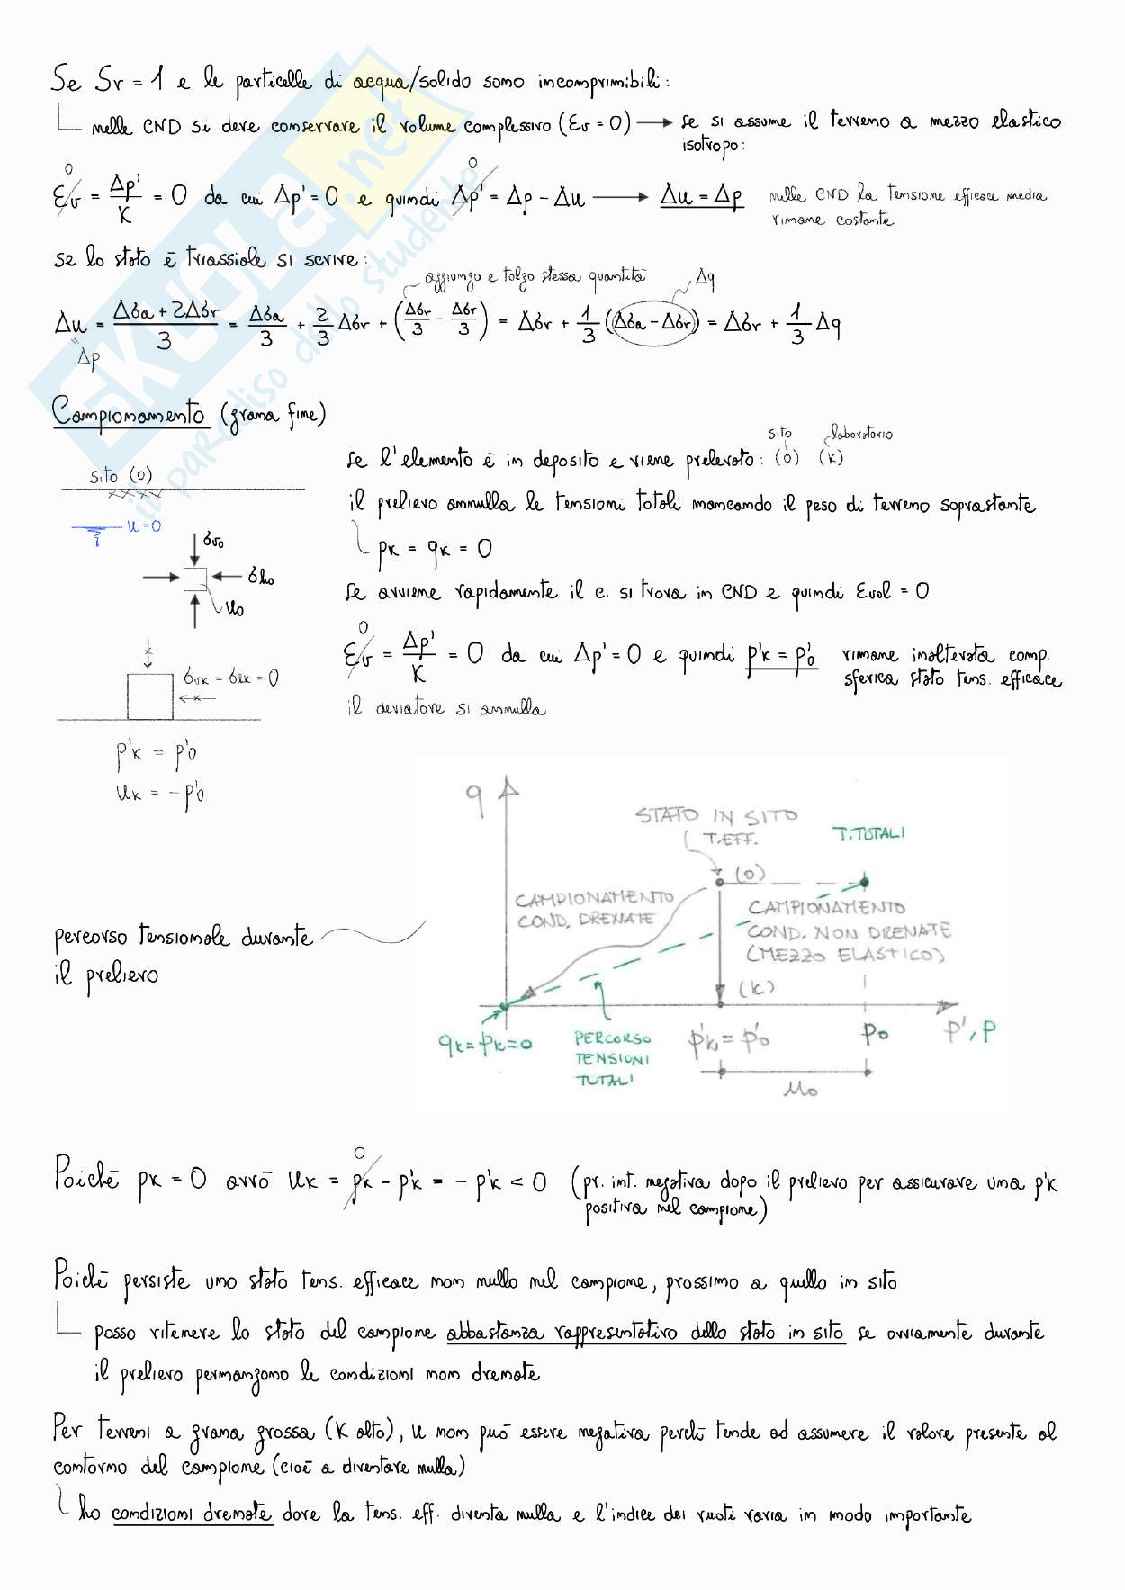 Se Sr = 1 e le particelle di acqua/solido sono incomprimibili:
nelle CND si deve conservare il volume complessivo (εv = 0) → se si assume il terreno a mezzo elastico
isotropo:
0
0
εv = Δp'/K = 0 da cui Δp' = 0 e quindi Δp' = Δp - Δu → Δu = Δp nelle CND la tensione efficace media
rimane costante
se lo stato è triassiale si scrive:
aggiungo e tolgo stessa quantità
Δq
Δu = (Δσa + 2Δσr)/3 = Δσa/3 + 2/3 Δσr + (Δσr/3 - Δσr/3) = Δσr + 1/3 (Δσa - Δσr) = Δσr + 1/3 Δq
Δp
Campionamento (grana fine)
sito laboratorio
se l'elemento è in deposito e viene prelevato: (0) (k)
sito (0)
il prelievo annulla le tensioni totali mancando il peso di terreno soprastante
u = 0
σv0
pk = qk = 0
σh0
u0
se avviene rapidamente il c. si trova in CND e quindi εvol = 0
0
εv = Δp'/K = 0 da cui Δp' = 0 e quindi p'k = p'0 rimane inalterata comp.
sferica stato tens. efficace
σvk - σhk - 0
il deviatore si annulla
p'k = p'0
uk = - p'0
q
STATO IN SITO
T.EFF.
T.TOTALI
(0)
CAMPIONAMENTO
COND. DRENATE
CAMPIONAMENTO
COND. NON DRENATE
(MEZZO ELASTICO)
percorso tensionale durante
il prelievo
(k)
qk = pk = 0
PERCORSO
TENSIONI
TOTALI
p'k = p'0
p0
p', p
u0
0
Poichè pk = 0 avrò uk = pk - p'k = - p'k < 0 (pr. int. negativa dopo il prelievo per assicurare una p'k
positiva nel campione)
Poichè persiste uno stato tens. efficace non nullo nel campione, prossimo a quello in sito
posso ritenere lo stato del campione abbastanza rappresentativo dello stato in sito se ovviamente durante
il prelievo permangono le condizioni non drenate
Per terreni a grana grossa (K alto), u non può essere negativa perchè tende ad assumere il valore presente al
contorno del campione (cioè a diventare nulla)
ho condizioni drenate dove la tens. eff. diventa nulla e l'indice dei vuoti varia in modo importante
SKUOLA.net
il paradiso dello studente